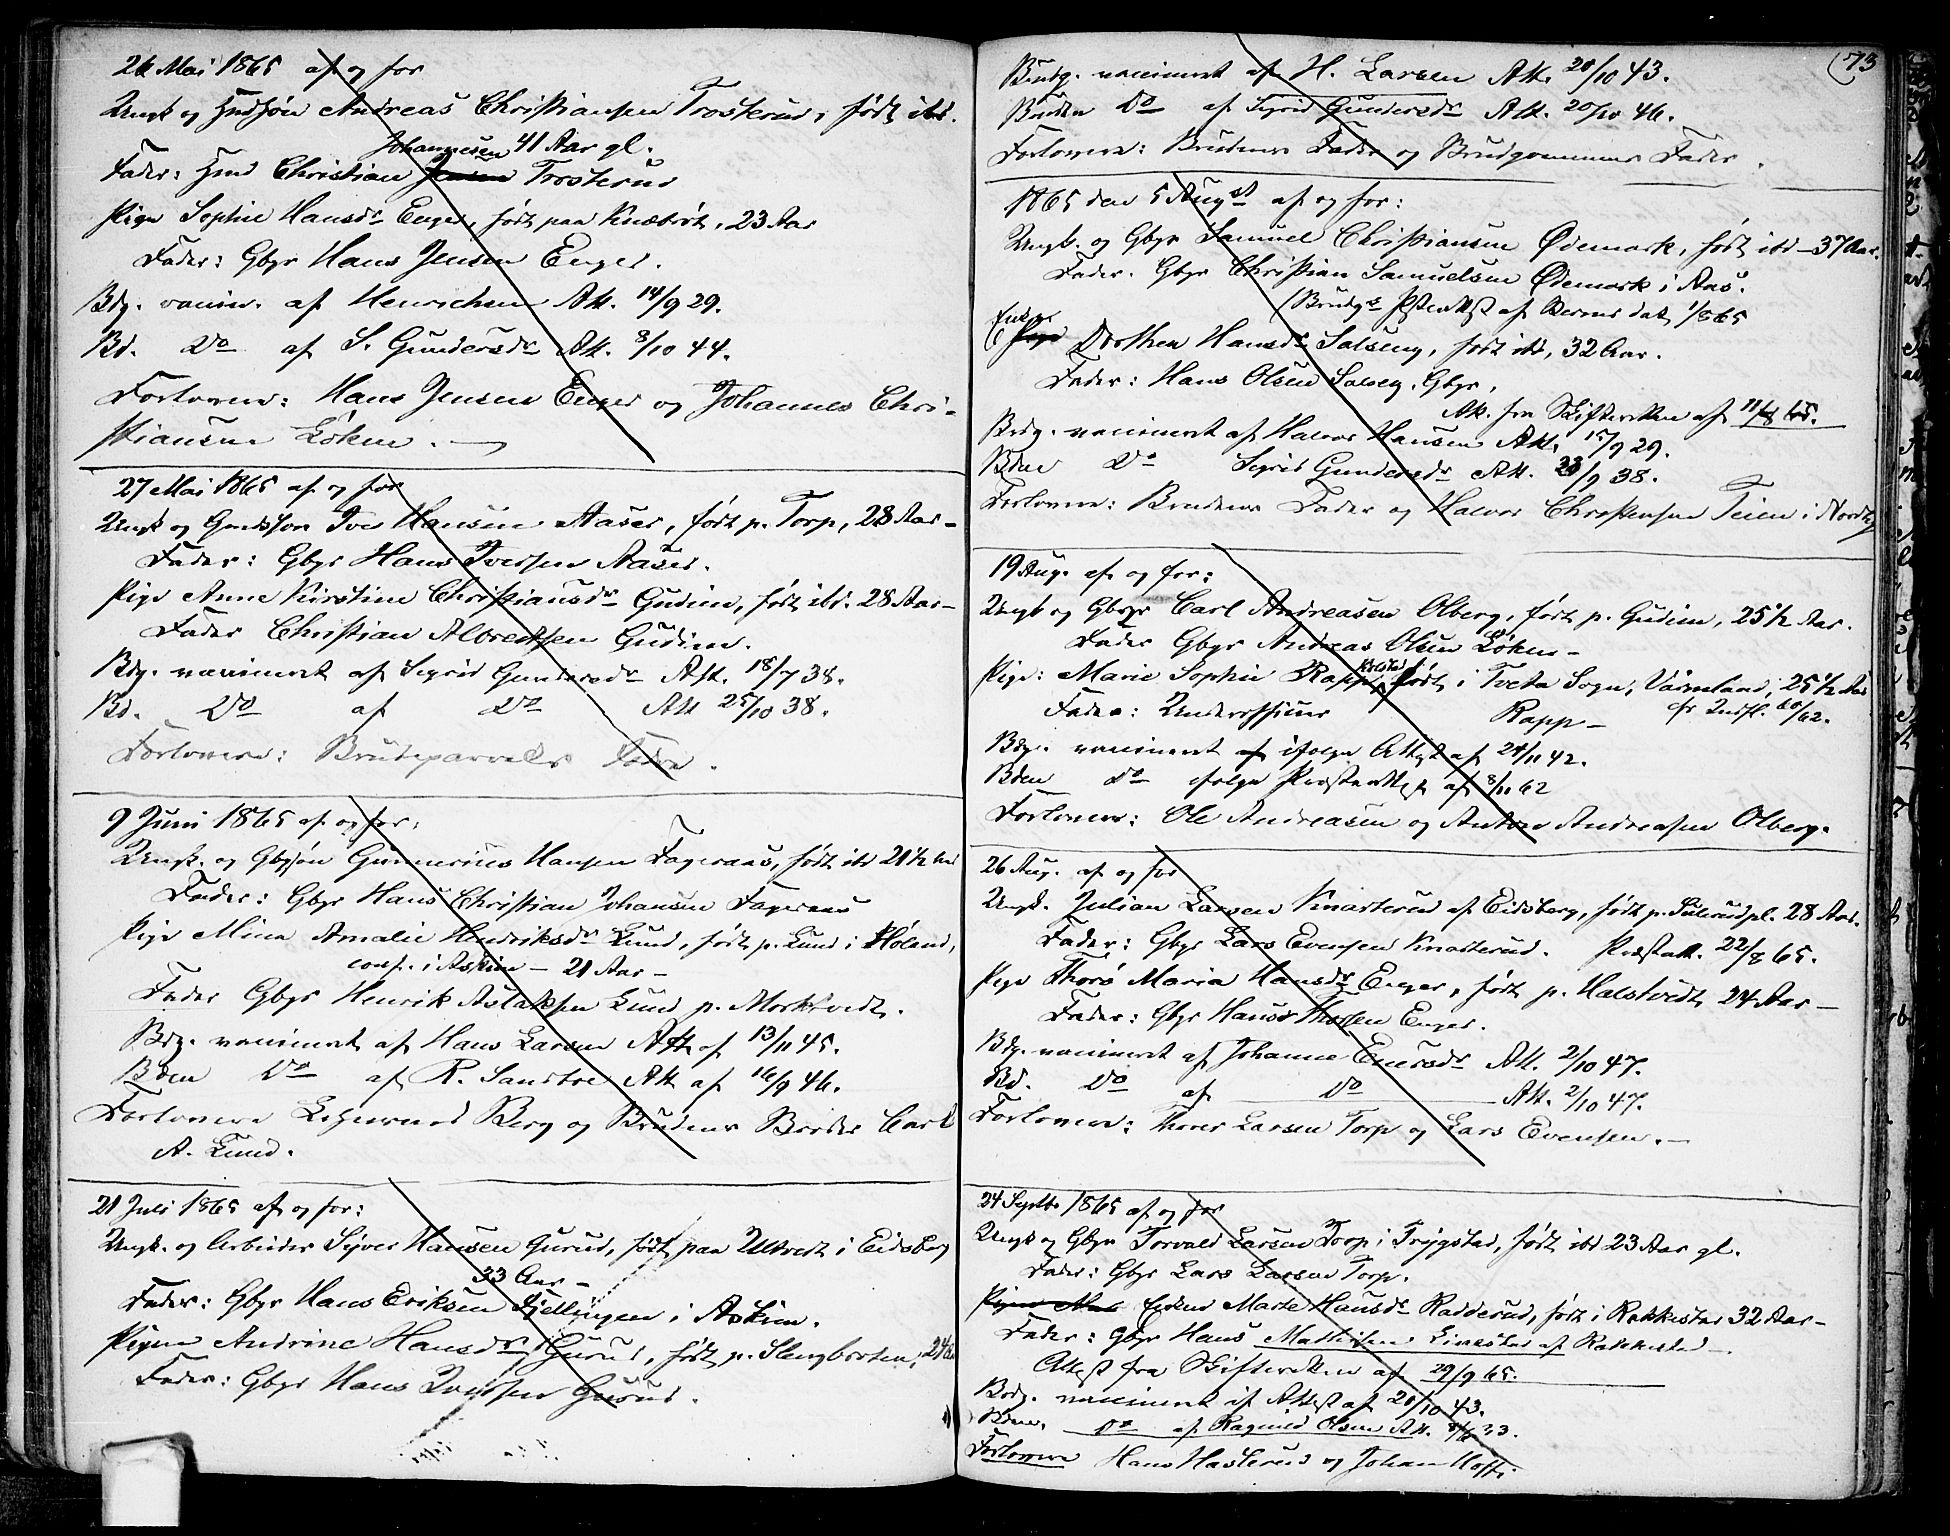 26 Mai 1865 af og for
Ungk og Husf: Andreas Christiansen Trosterud, født ibd.
Johannesen 41 Aar gl.
Fader: Hmd Christian Jensen Trosterud
Pige Sophie Hansdr Enger, født paa Knatvolt, 23 Aar
Fader: Gbgr Hans Jensen Enger.
Bdg. vaccin. af Henrichsen Att. 14/9 29.
Bd. Do af S. Gundersdr Att. 8/10 44.
Forlovere: Hans Jensen Enger og Johannes Chri-
stiansen Løken.
27 Mai 1865 af og for
Ungk og Gaardson Iver Hansen Aaser, født p. Torp, 28 Aar-
Fader: Gbgr Hans Iversen Aaser.
Pige Anne Kirstine Christiansdr Gudim, født ibd. 28 Aar-
Fader Christian Albretsen Gudim.
Bdg. vaccineret af Sigrid Gundersdr Att. 18/7 38.
Bd. Do af Do Att 25/10 38.
Forlovere: Brudeparrets Fædre.
9 Juni 1865 af og for:
Ungk. og Gbgsøn Gunnerius Hansen Fageraas, født ibd 21½ Aar
Fader: Gbgr Hans Christian Johansen Fageraas
Pige Mina Amalie Henriksdr Lund, født p. Lund i Høland,
conf. i Askim - 21 Aar -
Fader Gbgr Henrik Aslaksen Lund p. Morktvedt.
Bdg. vaccineret af Hans Larsen Att af 13/11 45.
Bden Do af R. Sandtrø Att af 16/9 46.
Forlovere Lehnsmand Berg og Brudens Broder Carl
A. Lund.
21 Juli 1865 af og for:
Ungk. og Arbeider Syver Hansen Gurud, født paa Ultvedt i Eidsberg
33 Aar -
Fader: Gbgr Hans Eriksen Fjellingen i Askim.
Pigen Andrine Hansdr Gurud, født p. Slengbraaten, 24
Fader: Gbgr Hans Iversen Gurud.
73
Brudg. vaccineret af H. Larsen Att. 20/10 43.
Bruden Do af Sigrid Gundersdr Att. 20/10 46.
Forlovere: Brudens Fader og Brudgommens Fader.
1865 den 5 August af og for:
Ungk. og Gbgr Samuel Christiansen Ødemark, født ibd - 37 Aar.
Fader. Gbgr Christian Samuelsen Ødemark i Aas.
(Brudgs Præsteattest af dat. 1/8 65
Enken Pige Dorthea Hansdr Solseng, født ibd, 32 Aar.
Fader: Hans Olsen Solseng. Gbgr.
Att. fra Skifteretten af 11/8 65.
Brdg. vaccineret af Halvor Hansen Att. 15/9 29.
Bden Do Sigrid Gundersdr Att. 23/9 38.
Forlovere: Brudens Fader og Halvor Christensen Teien i Nordby
19 Aug. af og for:
Ungk og Gbgr Carl Andreasen Olberg, født p. Gudim, 25½ Aar.
Fader Gbgr Andreas Olsen Løken -
Pige: Marie Sophie Rapp, født i Tveta Sogn, Värmland, 25½ Aar
Fader: Underofficer Rapp - cfr Indfl. /62.
Bdg. vaccineret af ifølge Attest af 24/11 42.
Bden do ifølge Præsteattest af 8/11 62
Forlovere: Ole Andreasen og Anton Andreasen Olberg.
26 Aug. af og for
Ungk. Julian Larsen Knatterud af Eidsberg, født p. Sulerudpl. 28 Aar.
Fader: Gbgr Lars Evensen Knatterud. Præstatt. 22/8 65.
Pige Thorø Maria Hansdr Enger, født p. Halstvedt, 24 Aar -
Fader: Gbgr Hans Thorsen Enger.
Bdg. vaccineret af Johanne Enersdr Att. 2/10 47.
Bd. Do af Do Att. 2/10 47.
Forlovere: Thorer Larsen Torp og Lars Evensen. -
24 Septbr 1865 af og for
Ungk og Gbgr Torvald Larsen Torp i Trygstad, født ibd 23 Aar gl.
Fader: Gbgr Lars Larsen Torp.
Pigen Mar Enken Marte Hansdr Radderud, født i Rakkestad 32 Aar -
Fader: Gbgr Hans af Rakkestad -
Attest fra Skifteretten af 29/9 65.
Brdg. vaccineret if Attest af 20/10 43.
Bden. Do af Ragnild Olsen Att. 33.
Forlovere Hans Hasterud og Johan